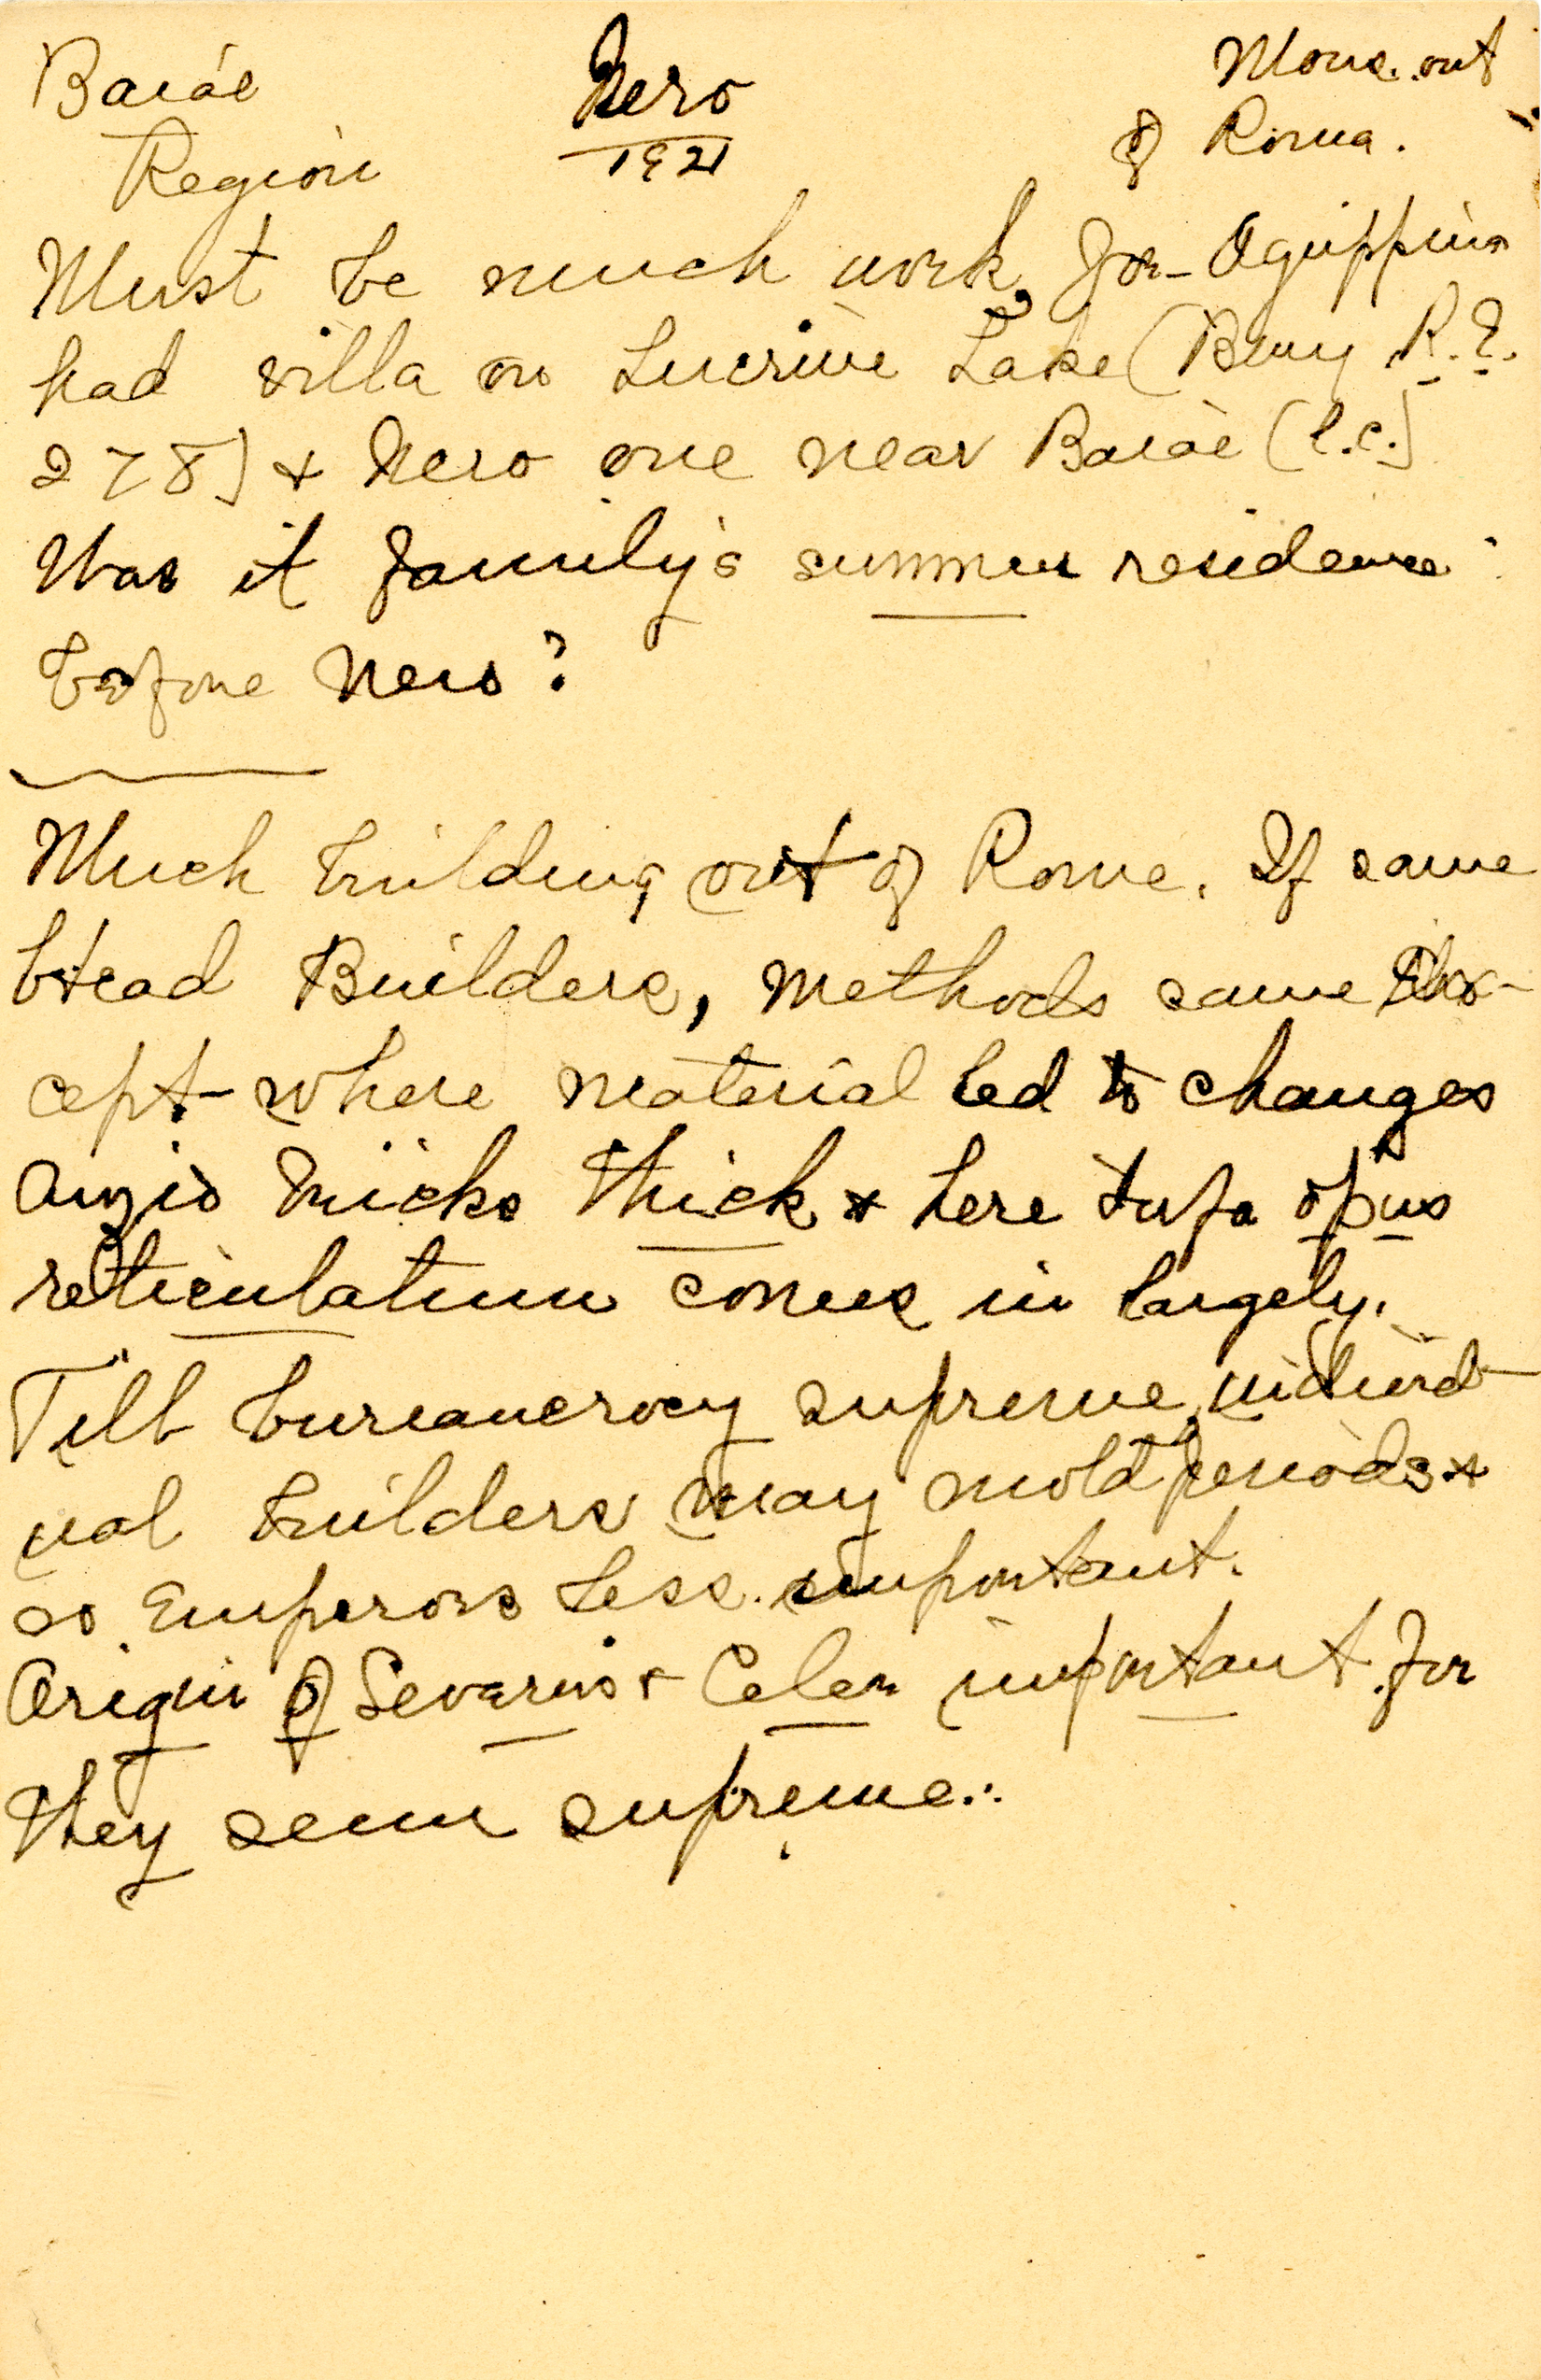 Baiae Nero Mons. out
Region 1921 of Roma.
Must be much work, for Agrippina
had villa on Lucrine Lake (Bury R.E.
278) & Nero one near Baiae (l.c.)
Was it family's summer residence
before Nero?
Much building out of Rome. If same
Head Builders, methods same ex-
cept where material led to changes
Anzio bricks thick & here tufa opus
reticulatum comes in largely.
Till bureaucracy supreme, individ-
ual builders may mold periods &
so Emperors less important.
Origin of Severus & Celer important for
they seem supreme.